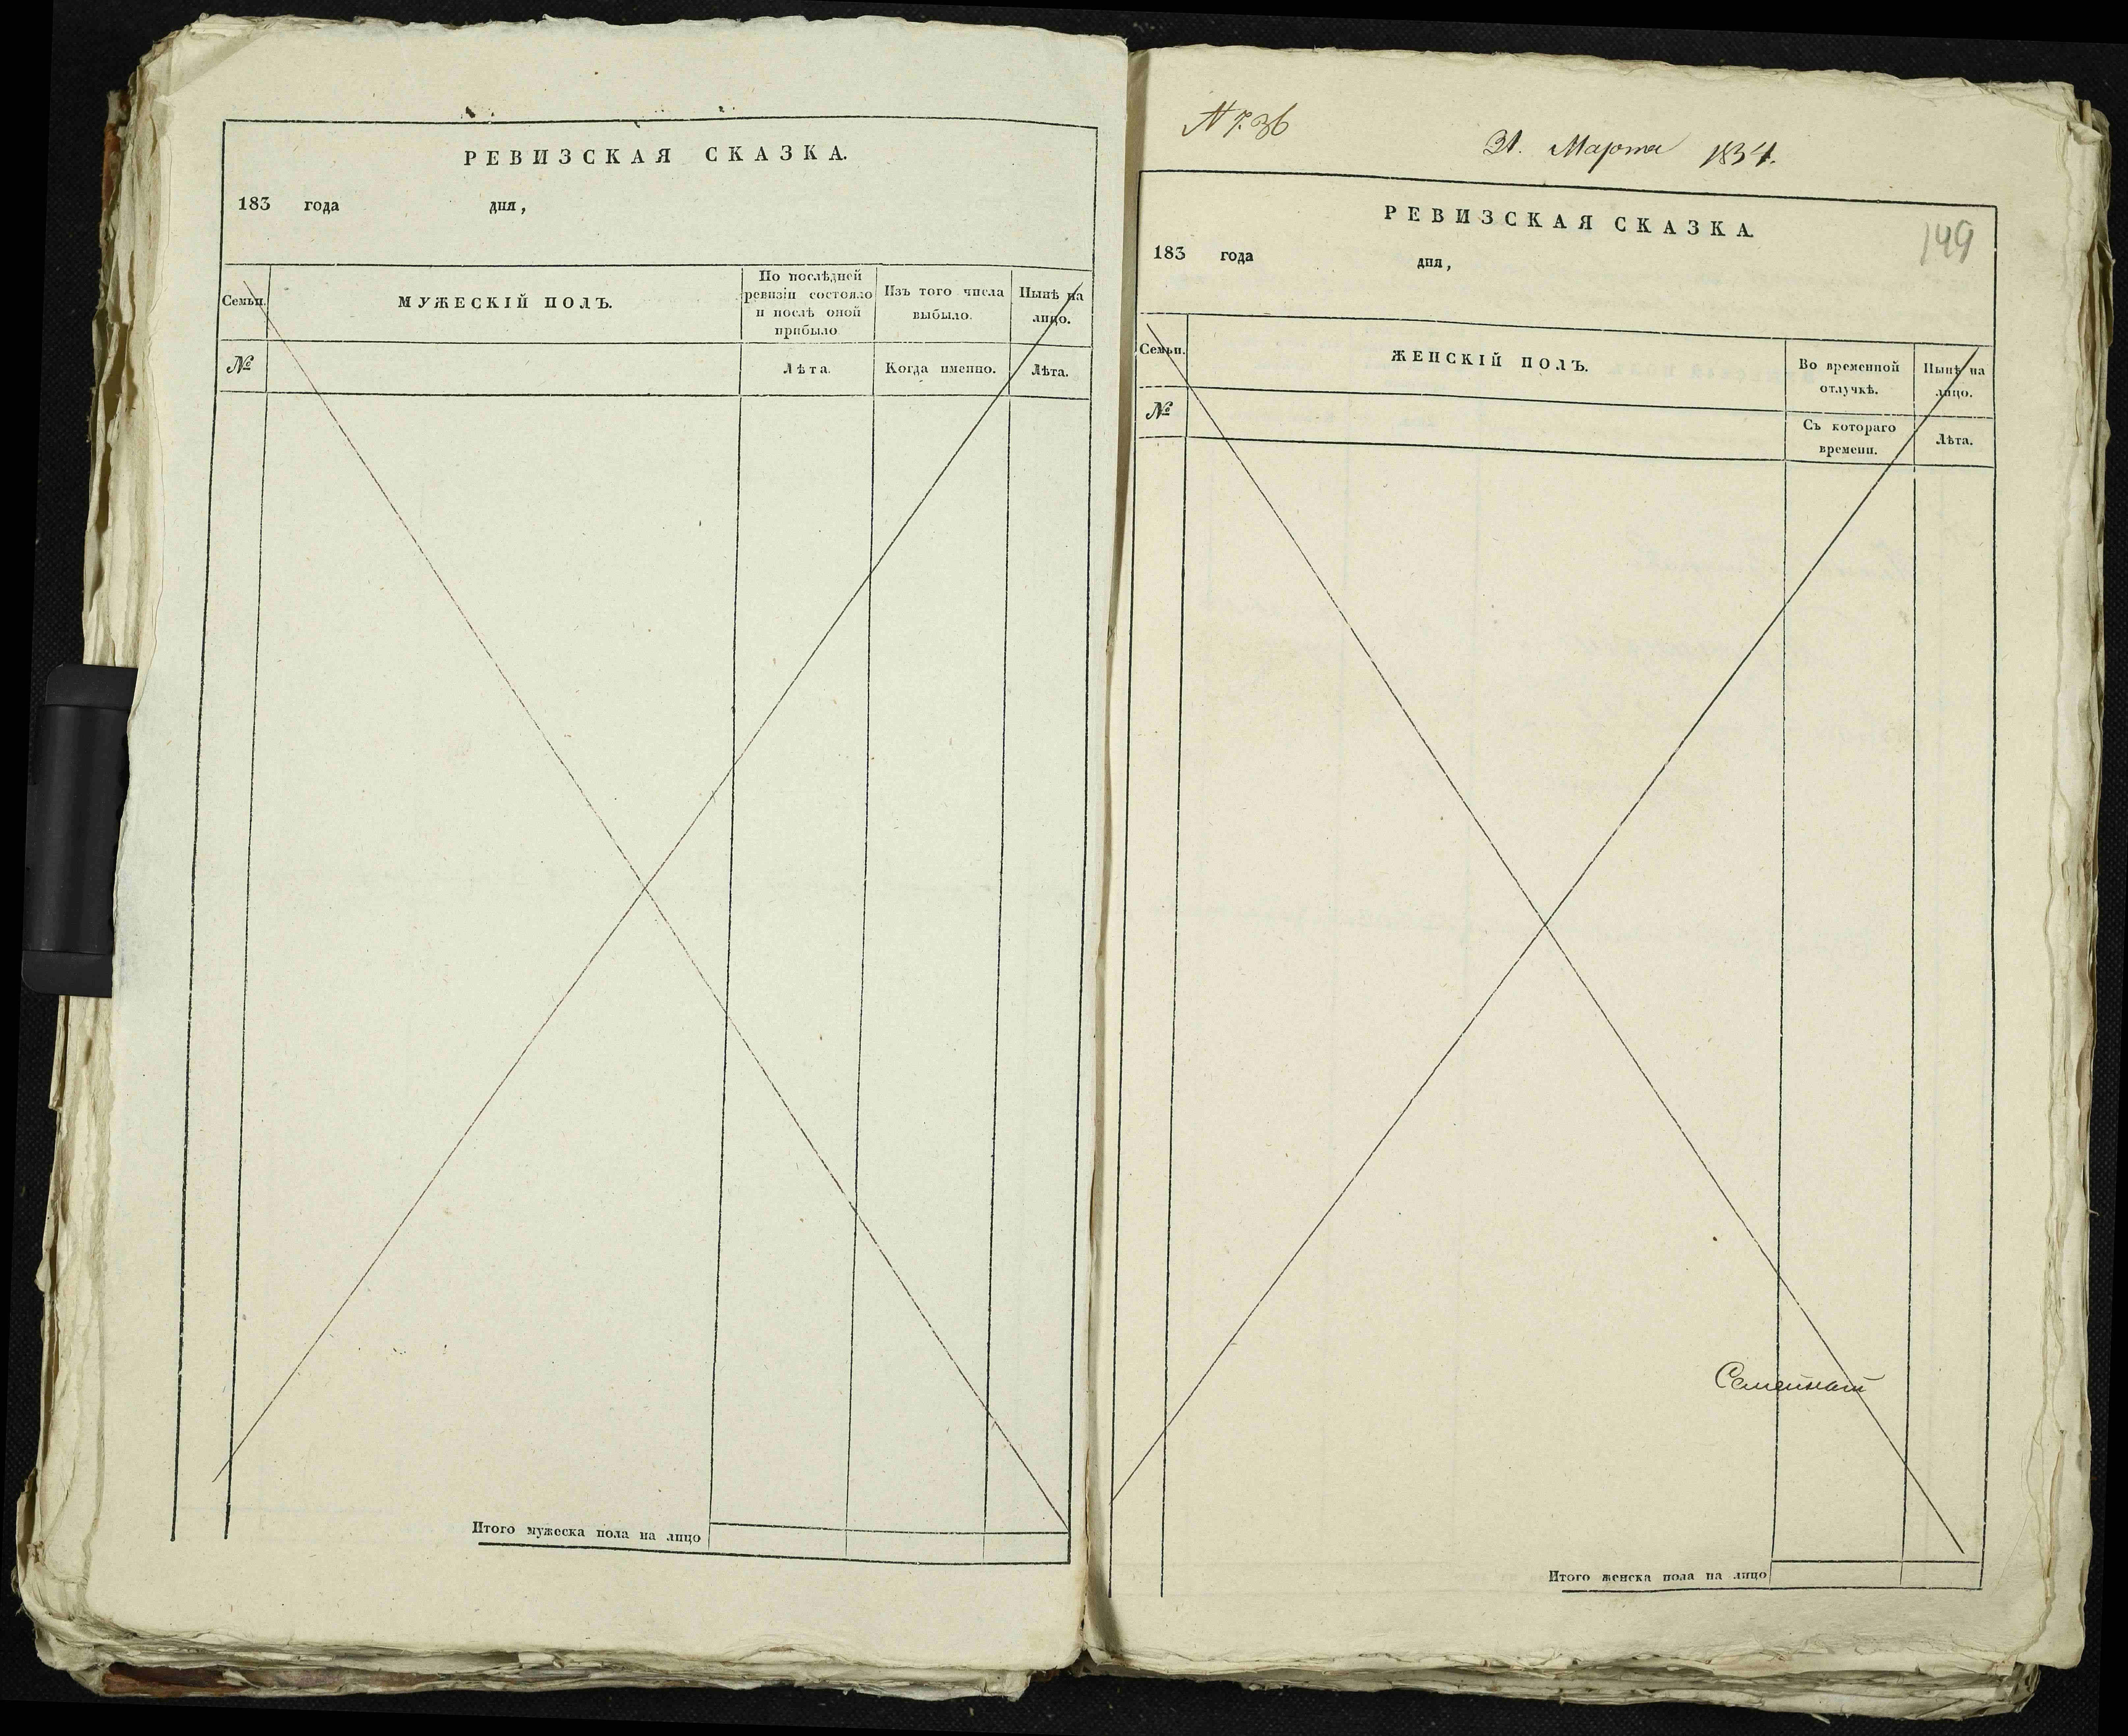 РЕВИЗСКАЯ СКАЗКА.
183 года дня,
Семьи.
МУЖЕСКІЙ ПОЛЪ.
По послѣдней
ревизіи состояло
и послѣ оной
прибыло
Изъ того числа
выбыло.
Нынѣ на
лицо.
№
Лѣта.
Когда именно.
Лѣта.
Итого мужеска пола на лицо
31. Марта 1834.
РЕВИЗСКАЯ СКАЗКА
149
183 года дня,
Семьи.
ЖЕНСКІЙ ПОЛЪ.
Во временной
отлучкѣ.
Нынѣ на
лицо.
№
Съ котораго
времени.
Лѣта.
Итого женска пола на лицо